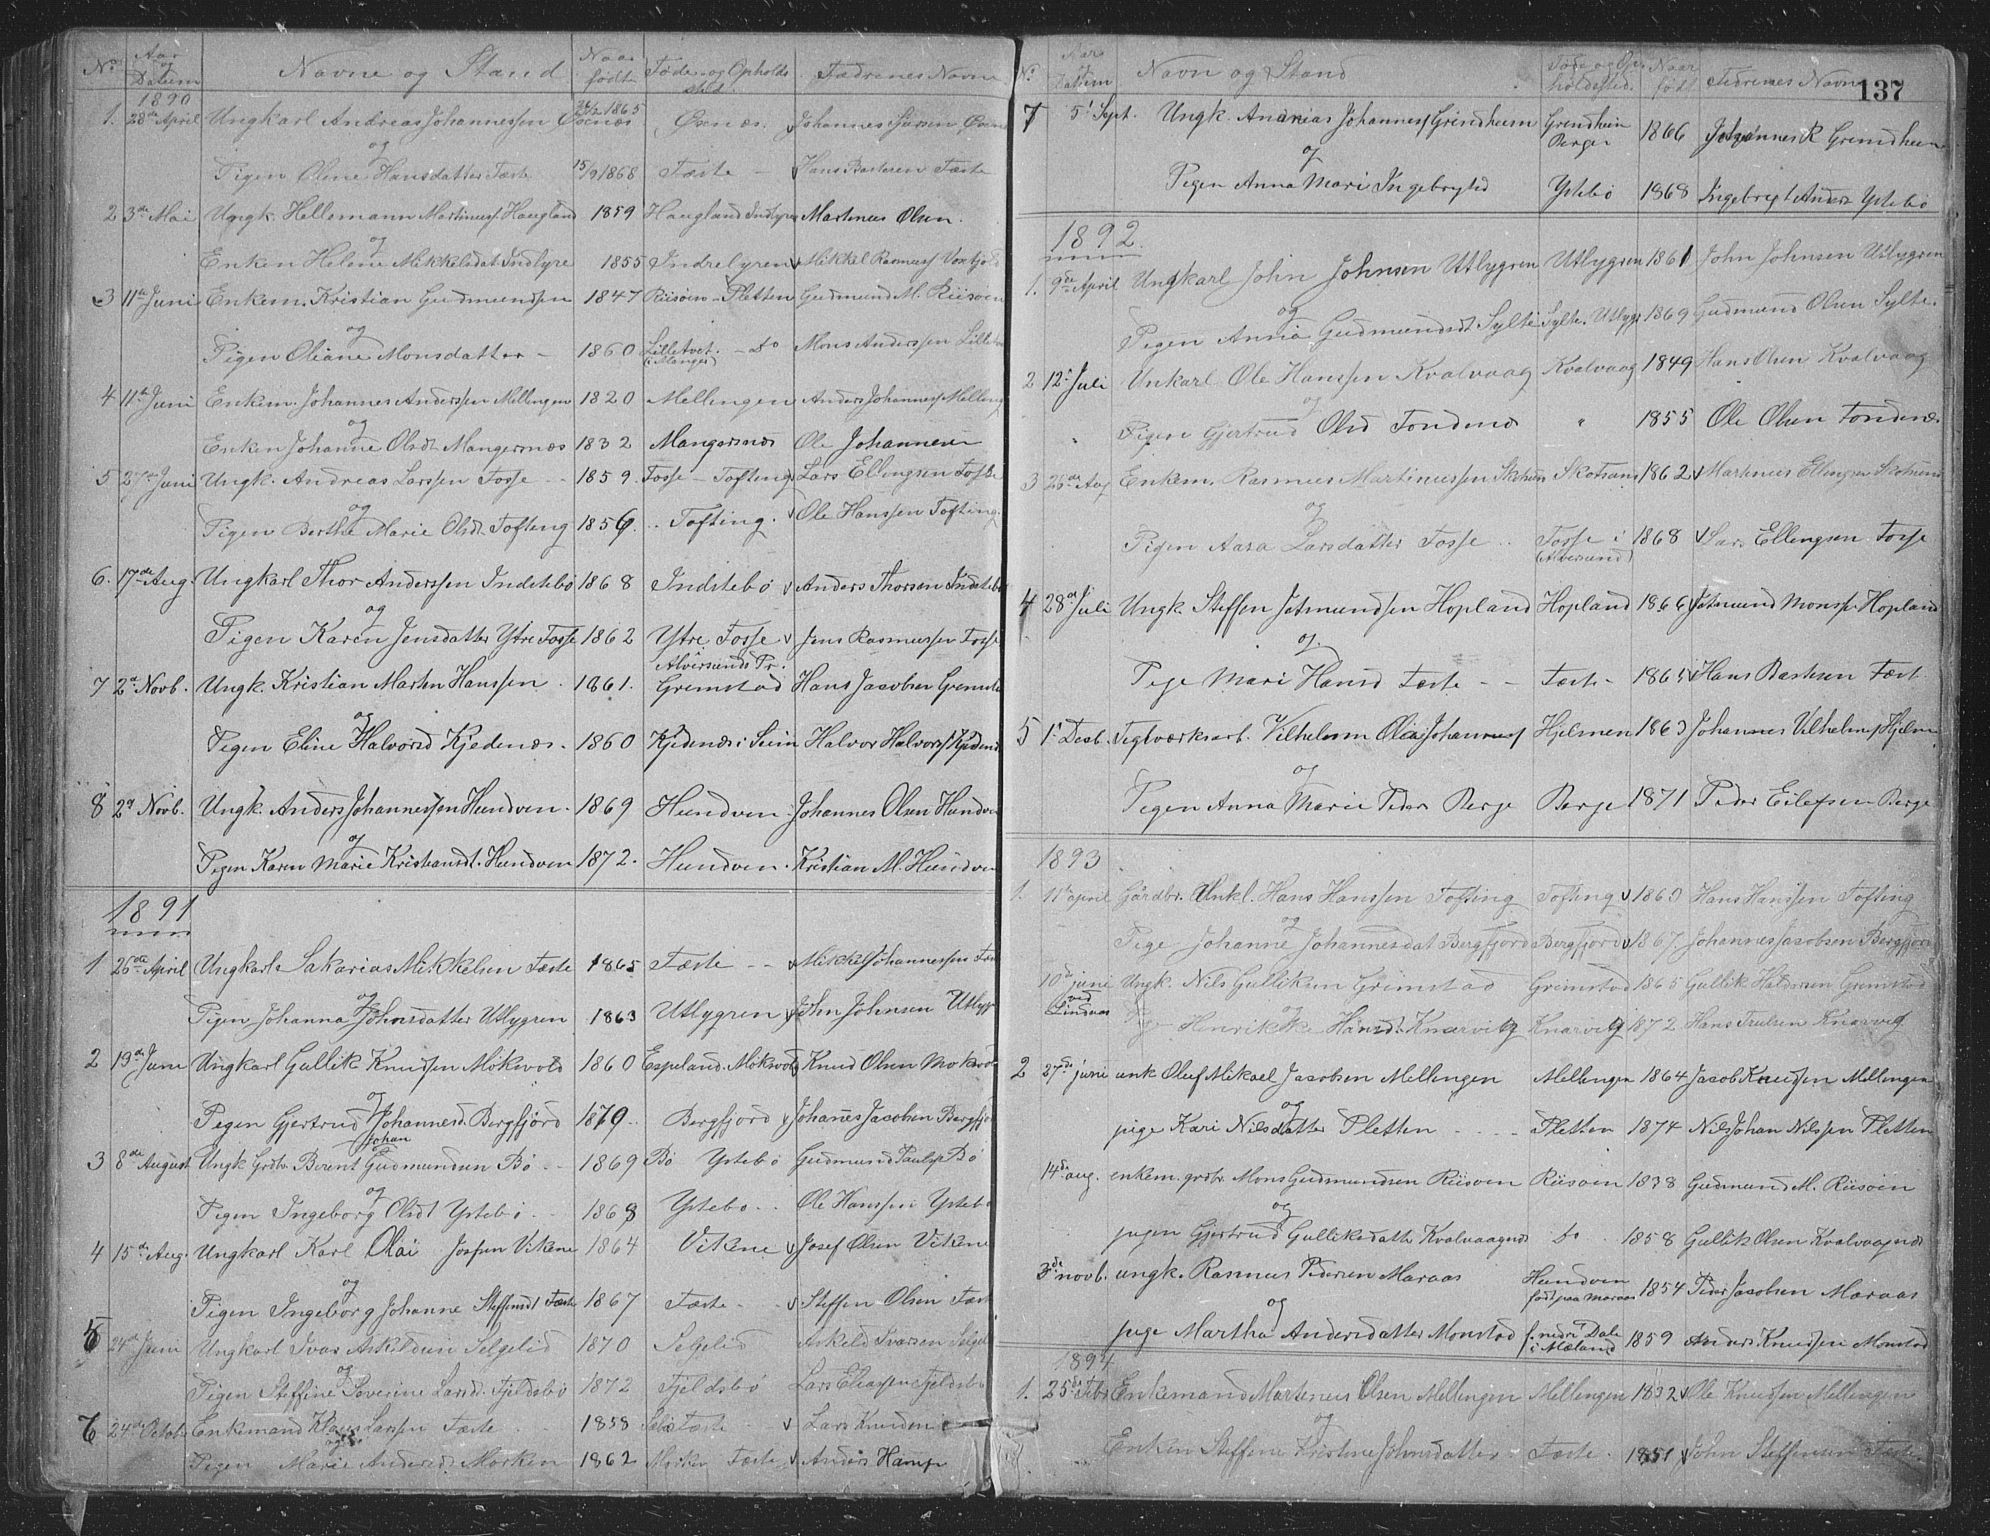 No Aar og Datum Navne og Stand Naar født Føde- og Opholds sted Fædrenes Navne
1890
1. 28de April Ungkarl Andreas Johannessen Øxnæs 1865 Øxnæs. Johannes
og
Pigen Oline Hansdatter Fæste 15/9 1868 Fæste - Hans Bastesen Fæste
2 3de Mai Ungk. Hellemann Martinuss Haugland 1859 Haugland Indlyre Martinus Olsen.
og
Enken Helene Mikkelsdat. Indlyre 1855 Indrelyren Mikkel Rasmuss
3 11te Juni Enkem. Kristian Gudmundsen 1847 Riisøen - Pletten Gudmund M. Riisøen
og
Pigen Oliane Monsdatter - 1860 Lilletvet. - Do Mons Anderssen
(i Manger)
4 11te Juni Enkem. Johannes Anderssen Mellingen 1820 Mellingen Anders Johanness Melling
og
Enken Johanne Olsdt. Mangersnæs 1832 Mangersnæs Ole Johannesen
5 27de Juni Ungk. Andreas Larssen Fosse - - 1859. Fosse - Tofting Lars Ellingsen Fosse
og
Pigen Berthe Marie Olsdt. Tofting 1856. .. Tofting. Ole Hanssen Tofting.
6. 17de Aug. Ungkarl Thor Anderssen Indstebø 1868 Indstebø Anders Thorsen Indstebø
og
Pigen Karen Jensdatter Ytre Fosse 1862 Ytre Fosse Jens Rasmussen Fosse
Alversunds Pr.
7 2de Novb. Ungk. Kristian Martin Hanssen - 1861. Grimstad Hans Jacobsen
og
Pigen Eline Halvorsd Kjedenæs - 1860 Kjedenæs i Seim Halvor Halvors
8 2de Novb. Ungk. Anders Johannessen Hundven - 1869 Hundven - Johannes Olsen Hundven
og
Pigen Karen Marie Kristiansdt. Hundven 1872. Hundven. Kristian M. Hundven
1891
1 26de April Ungkarl Sakarias Mikkelsen Fæste 1865 Fæste - - Mikkel Johannessen
og
Pigen Johanna Johnsdatter Utlygren 1863 Utlygren John Johnsen
2 19de Juni Ungkarl Gullik Knudsen Mokvold 1860 Espeland Mokvold Knud Olsen
og
Pigen Gjertrud Johannesd. Bergfjord 1870. Bergfjord Johanes Jacobsen
Johan
3 8de August Ungk Grdbr. Berent Gudmundsen Bø - - 1869 Bø Ystebø Gudmund Pauls Bø
og
Pigen Ingeborg Olsdt Ystebø - - 1868 Ystebø. - Ole Hanssen Ystebø
4 15de Aug. Ungkarl Karl Olai Vikene 1864 Vikene Josef Olsen Vikene
og
Pigen Ingeborg Johanne Steffensdt Fæste 1867 Fæste - - Steffen Olsen
5 24de Juni Ungkarl Ivar Askildsen Selgelid 1870 Selgelid Askild Ivarsen
og
Pigen Steffine Severine Larsd. Fjeldsbø 1872 Fjeldsbø Lars Eliassen Fjeldsbø
6 24de Octob Enkemand Larssen Fæste 1858 Fæste Lars Knudsen
og
Pigen Marie Andersd. Morken 1862 Morken Fæste Anders Hamp
137
No. Aar og Datum Navn og Stand Føde og Op- holdssted. Naar født Fædrenes Navne
7 5te Sept. Ungk. Andreas Johanness Grindheim Grindheim 1866 Johannes R Grindheim
Berge
og
Pigen Anna Mari Ingebrigtsd Ystebø 1868 Ingebrigt Anders Ystebø
1892.
1. 9de April Ungkarl John Johnsen Utlygren Utlygren 1861 John Johnsen Utlygren
og
Pigen Anna Gudmundsdt Sylte Sylte. Utlygr 1869 Gudmund Olsen Sylte.
2 12te Juli Unkarl Ole Hanssen Kvalvaag Kvalvaag 1849 Hans Olsen Kvalvaag
og
Pigen Gjertrud Olsd Fondnæs " 1855 Ole Olsen Fondnæs
3 26de Aug Enkem. Rasmus Martinussen 1862 Martinus Ellingsen
og
Pigen Aasa Larsdatter Fosse .. Fosse i 1868 Lars Ellingsen Fosse
(Alversund)
4 28de Juli Ungk Steffen Jetmundsen Hopland Hopland 1866 Jetmund Monss. Hopland
og
Pige Mari Hansd Fæste - - Fæste - 1865 Hans Bastesen Fæst
5 1te Desb. Teglværksarb. Vilhelm Olai Johanness Hjelmen 1863 Johannes Vilhelms Hjelm
og
Pigen Anna Marie Peders Berge Berge 1871 Peder Eilefsen Berge
1893
1. 11te april Gårdbr. Unkl. Hans Hanssen Tofting Tofting 1869 Hans Hanssen Tofting
og
Pige Johanne Johannesdat Bergfjord Bergfjord 1867. Johannes Jacobsen Bergfjord
10de juni Ungk. Nils Gulliksen Grimstad Grimstad 1865 Gullik Haldorsen Grimstad
ved Lindaas
og
Henrikke Hansdt. Knarvig Knarvig 1872 Hans Trulsen Knarvig
2 27de juni unk Oluf Mikael Jacobsen Mellingen Mellingen 1864 Jacob Knudsen Mellingen
og
pige Kari Nilsdatter Pletten - - - Pletten 1874 Nils Johan Nilssen Pletten
14de aug. enkem. grdbr. Mons Gudmundsen Riisøen Riisøen 1838 Gudmund M. Riisøen
og
pigen Gjertrud Gulliksdatter Kvalvaagnæs Do 1858 Gullik Olsen Kvalvaagnæs
3de novb. ungk. Rasmus Pedersen Maraas Hundven 1854 Peder Jacobsen Maraas
født paa Maraas
og
pige Martha Andersdatter Monstad f. nedre Dale 1859 Anders Knudsen Monstad
i Mæland
1894
1. 25de Febr Enkemand Martinus Olsen Mellingen Mellingen 1832 Ole Knudsen Mellingen
og
Enken Steffine Kristine Johnsdatter - Fæste - 1851 John Steffensen Fæste